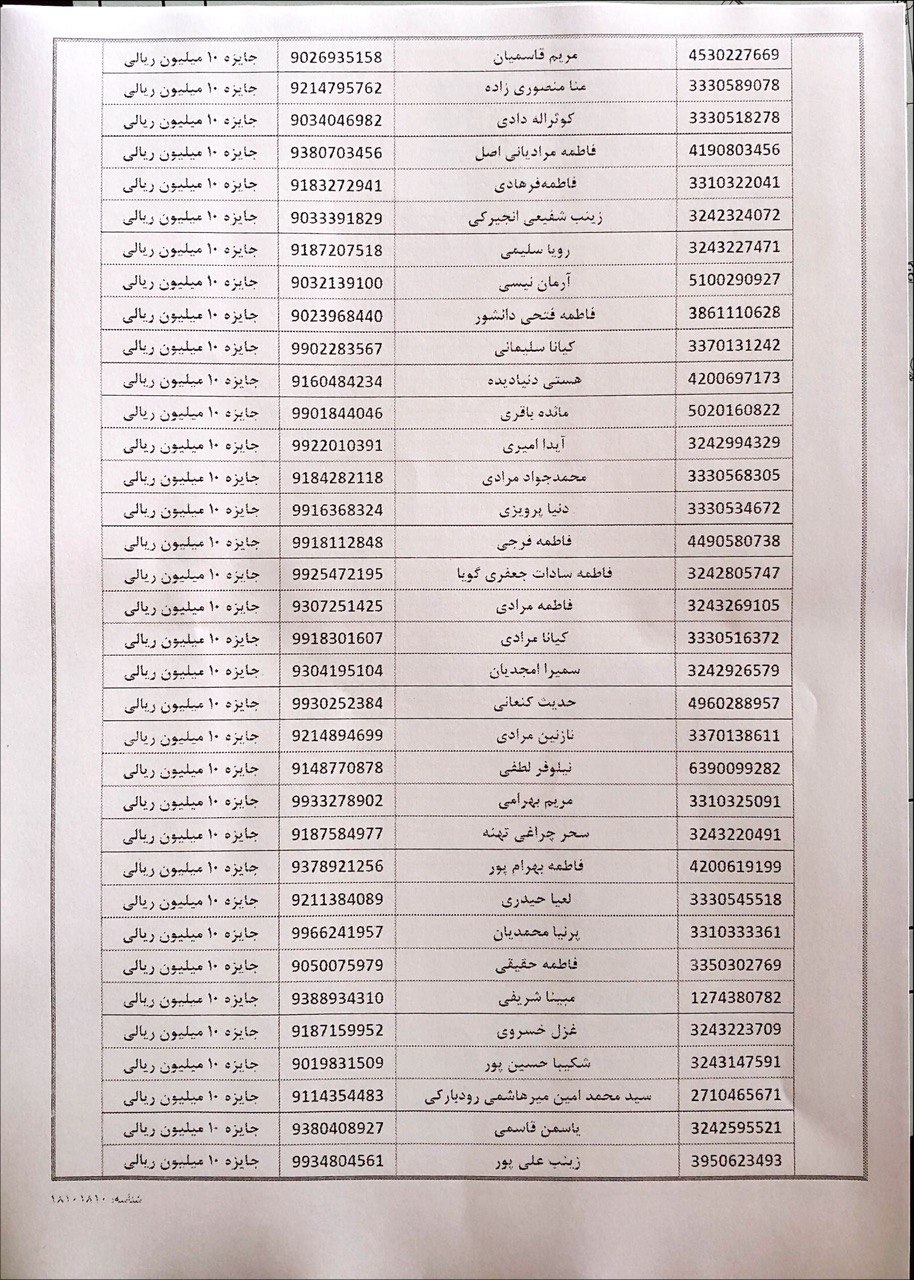 4530227669 مریم قاسمیان 9026935158 جایزه ۱۰ میلیون ریالی
3330589078 منا منصوری زاده 9214795762 جایزه ۱۰ میلیون ریالی
3330518278 کوثراله دادی 9034046982 جایزه ۱۰ میلیون ریالی
4190803456 فاطمه مرادیانی اصل 9380703456 جایزه ۱۰ میلیون ریالی
3310322041 فاطمه‌فرهادی 9183272941 جایزه ۱۰ میلیون ریالی
3242324072 زینب شفیعی انجیرکی 9033391829 جایزه ۱۰ میلیون ریالی
3243227471 رویا سلیمی 9187207518 جایزه ۱۰ میلیون ریالی
5100290927 آرمان نیسی 9032139100 جایزه ۱۰ میلیون ریالی
3861110628 فاطمه فتحی دانشور 9023968440 جایزه ۱۰ میلیون ریالی
3370131242 کیانا سلیمانی 9902283567 جایزه ۱۰ میلیون ریالی
4200697173 هستی دنیادیده 9160484234 جایزه ۱۰ میلیون ریالی
5020160822 مائده باقری 9901844046 جایزه ۱۰ میلیون ریالی
3242994329 آیدا امیری 9922010391 جایزه ۱۰ میلیون ریالی
3330568305 محمدجواد مرادی 9184282118 جایزه ۱۰ میلیون ریالی
3330534672 دنیا پرویزی 9916368324 جایزه ۱۰ میلیون ریالی
4490580738 فاطمه فرجی 9918112848 جایزه ۱۰ میلیون ریالی
3242805747 فاطمه سادات جعفری گویا 9925472195 جایزه ۱۰ میلیون ریالی
3243269105 فاطمه مرادی 9307251425 جایزه ۱۰ میلیون ریالی
3330516372 کیانا مرادی 9918301607 جایزه ۱۰ میلیون ریالی
3242926579 سمیرا امجدیان 9304195104 جایزه ۱۰ میلیون ریالی
4960288957 حدیث کنعانی 9930252384 جایزه ۱۰ میلیون ریالی
3370138611 نازنین مرادی 9214894699 جایزه ۱۰ میلیون ریالی
6390099282 نیلوفر لطفی 9148770878 جایزه ۱۰ میلیون ریالی
3310325091 مریم بهرامی 9933278902 جایزه ۱۰ میلیون ریالی
3243220491 سحر چراغی تهنه 9187584977 جایزه ۱۰ میلیون ریالی
4200619199 فاطمه بهرام پور 9378921256 جایزه ۱۰ میلیون ریالی
3330545518 لعیا حیدری 9211384089 جایزه ۱۰ میلیون ریالی
3310333361 پرنیا محمدیان 9966241957 جایزه ۱۰ میلیون ریالی
3350302769 فاطمه حقیقی 9050075979 جایزه ۱۰ میلیون ریالی
1274380782 مبینا شریفی 9388934310 جایزه ۱۰ میلیون ریالی
3243223709 غزل خسروی 9187159952 جایزه ۱۰ میلیون ریالی
3243147591 شکیبا حسین پور 9019831509 جایزه ۱۰ میلیون ریالی
2710465671 سید محمد امین میرهاشمی رودبارکی 9114354483 جایزه ۱۰ میلیون ریالی
3242595521 یاسمن قاسمی 9380408927 جایزه ۱۰ میلیون ریالی
3950623493 زینب علی پور 9934804561 جایزه ۱۰ میلیون ریالی
شناسه: ۱۸۱۰۱۸۱۰